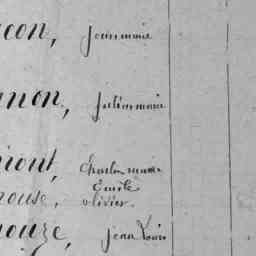 con, jeanmarie
non, julienmarie
mont, charlesmarie
Emile
rouse, olivier.
ouze, jean Louis